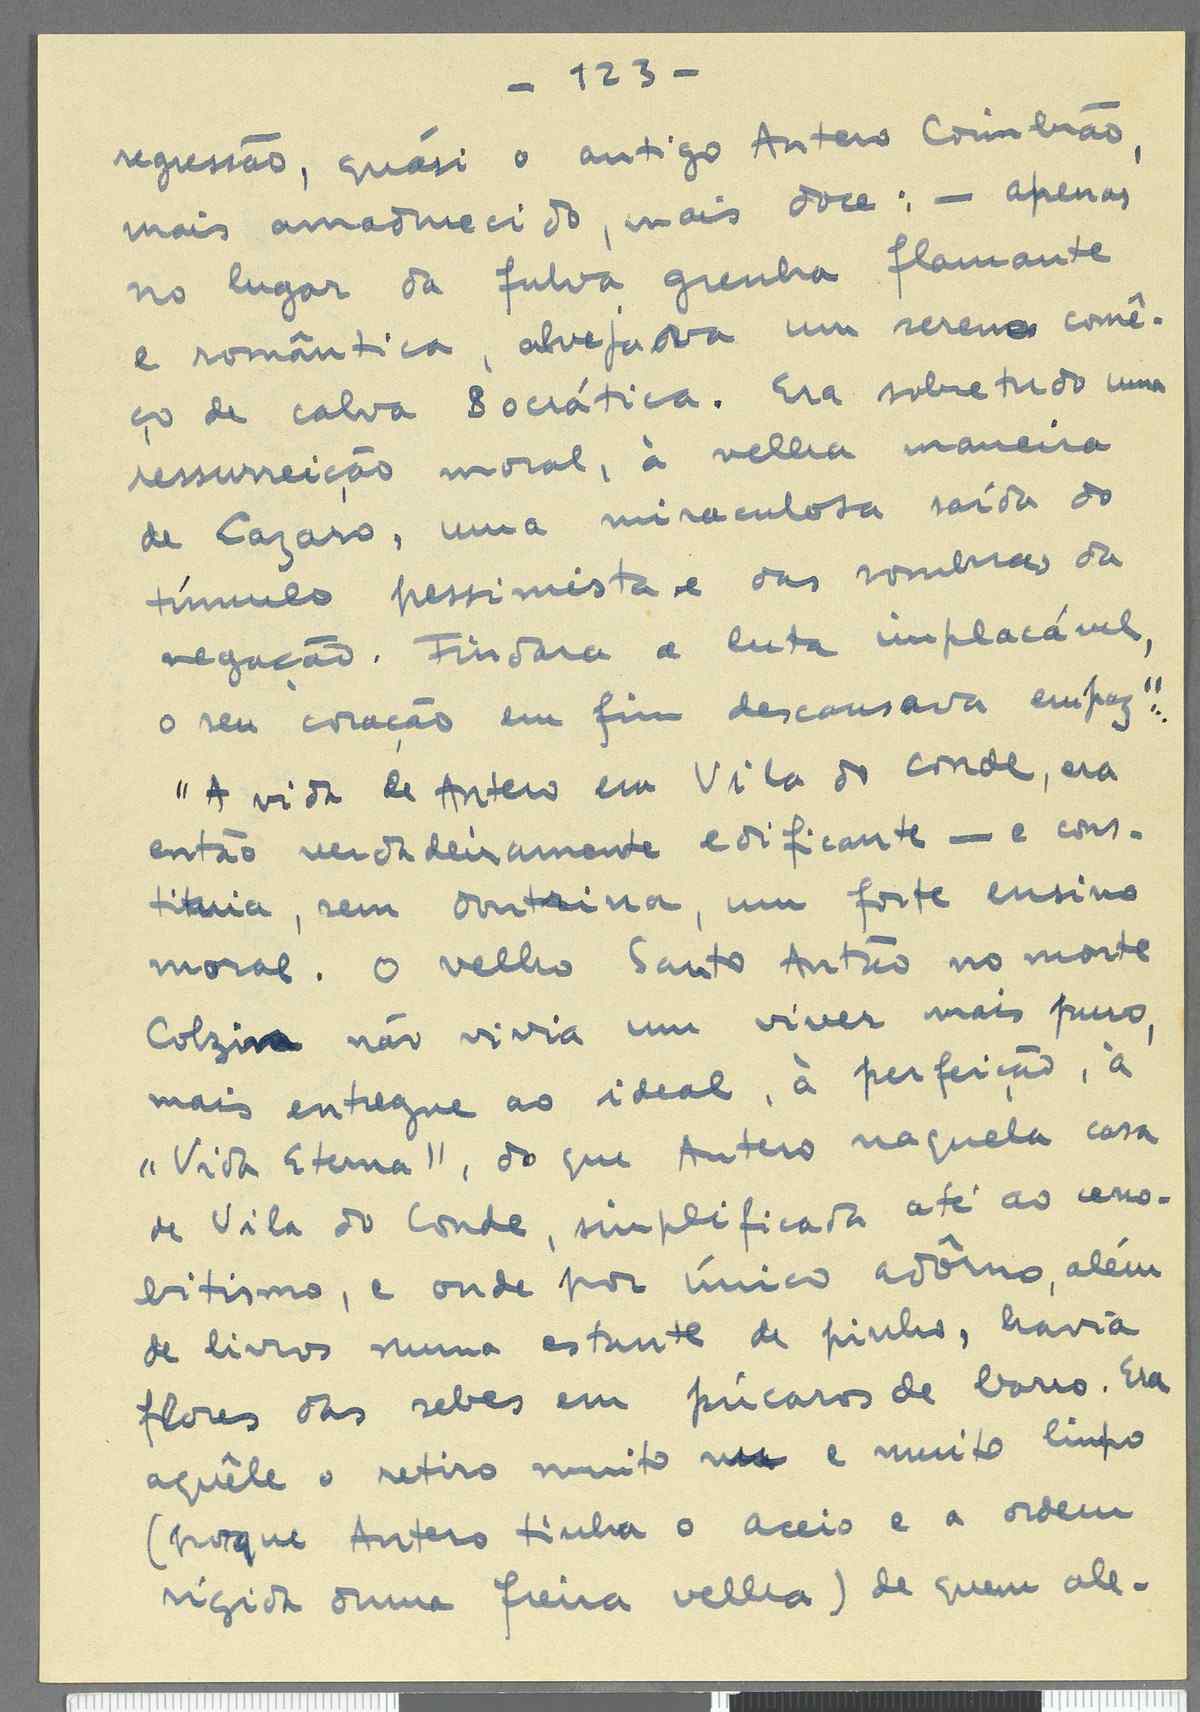 - 123 -
regressão, quási o antigo Antero Coimbrão,
mais amadurecido, mais doce: — apenas
no lugar da fulva grenha flamante
e romântica, alvejava um sereno comê-
ço de calva Socrática. Era sobretudo uma
ressurreição moral, à velha maneira
de Lazaro, uma miraculosa saída do
túmulo pessimista e das sombras da
negação. Findara a luta implacável,
o seu coração em fim descansava em paz".
"A vida de Antero em Vila do Conde, era
então verdadeiramente edificante — e cons-
tituia, sem doutrina, um forte ensino
moral. O velho Santo Antão no monte
Colzin não vivia um viver mais puro,
mais entregue ao ideal, à perfeição, à
"Vida Eterna", do que Antero naquela casa
de Vila do Conde, simplificada até ao ceno-
bitismo, e onde por único adôrno, além
de livros numa estante de pinho, havia
flores das sebes em púcaros de barro. Era
aquêle o retiro muito nu e muito limpo
(porque Antero tinha o aceio e a ordem
rígida duma freira velha) de quem ale-